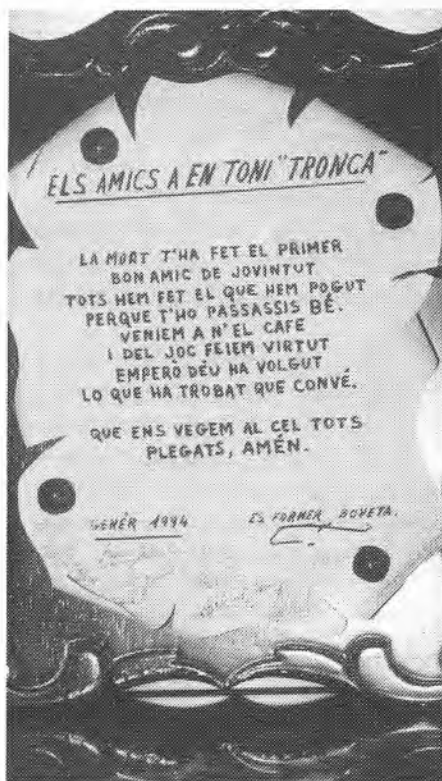 ELS AMICS A EN TONI "TRONCA"
LA MORT T'HA FET EL PRIMER
BON AMIC DE JOVINTUT
TOTS HEM FET EL QUE HEM POGUT
PERQUE T'HO PASSASSIS BÉ.
VENIEM A N'EL CAFE
I DEL JOC FEIEM VIRTUT
EMPERO DÉU HA VOLGUT
LO QUE HA TROBAT QUE CONVÉ.
QUE ENS VEGEM AL CEL TOTS
PLEGATS, AMÉN.
GENÉR 1994
ES FORNER BOVETA.